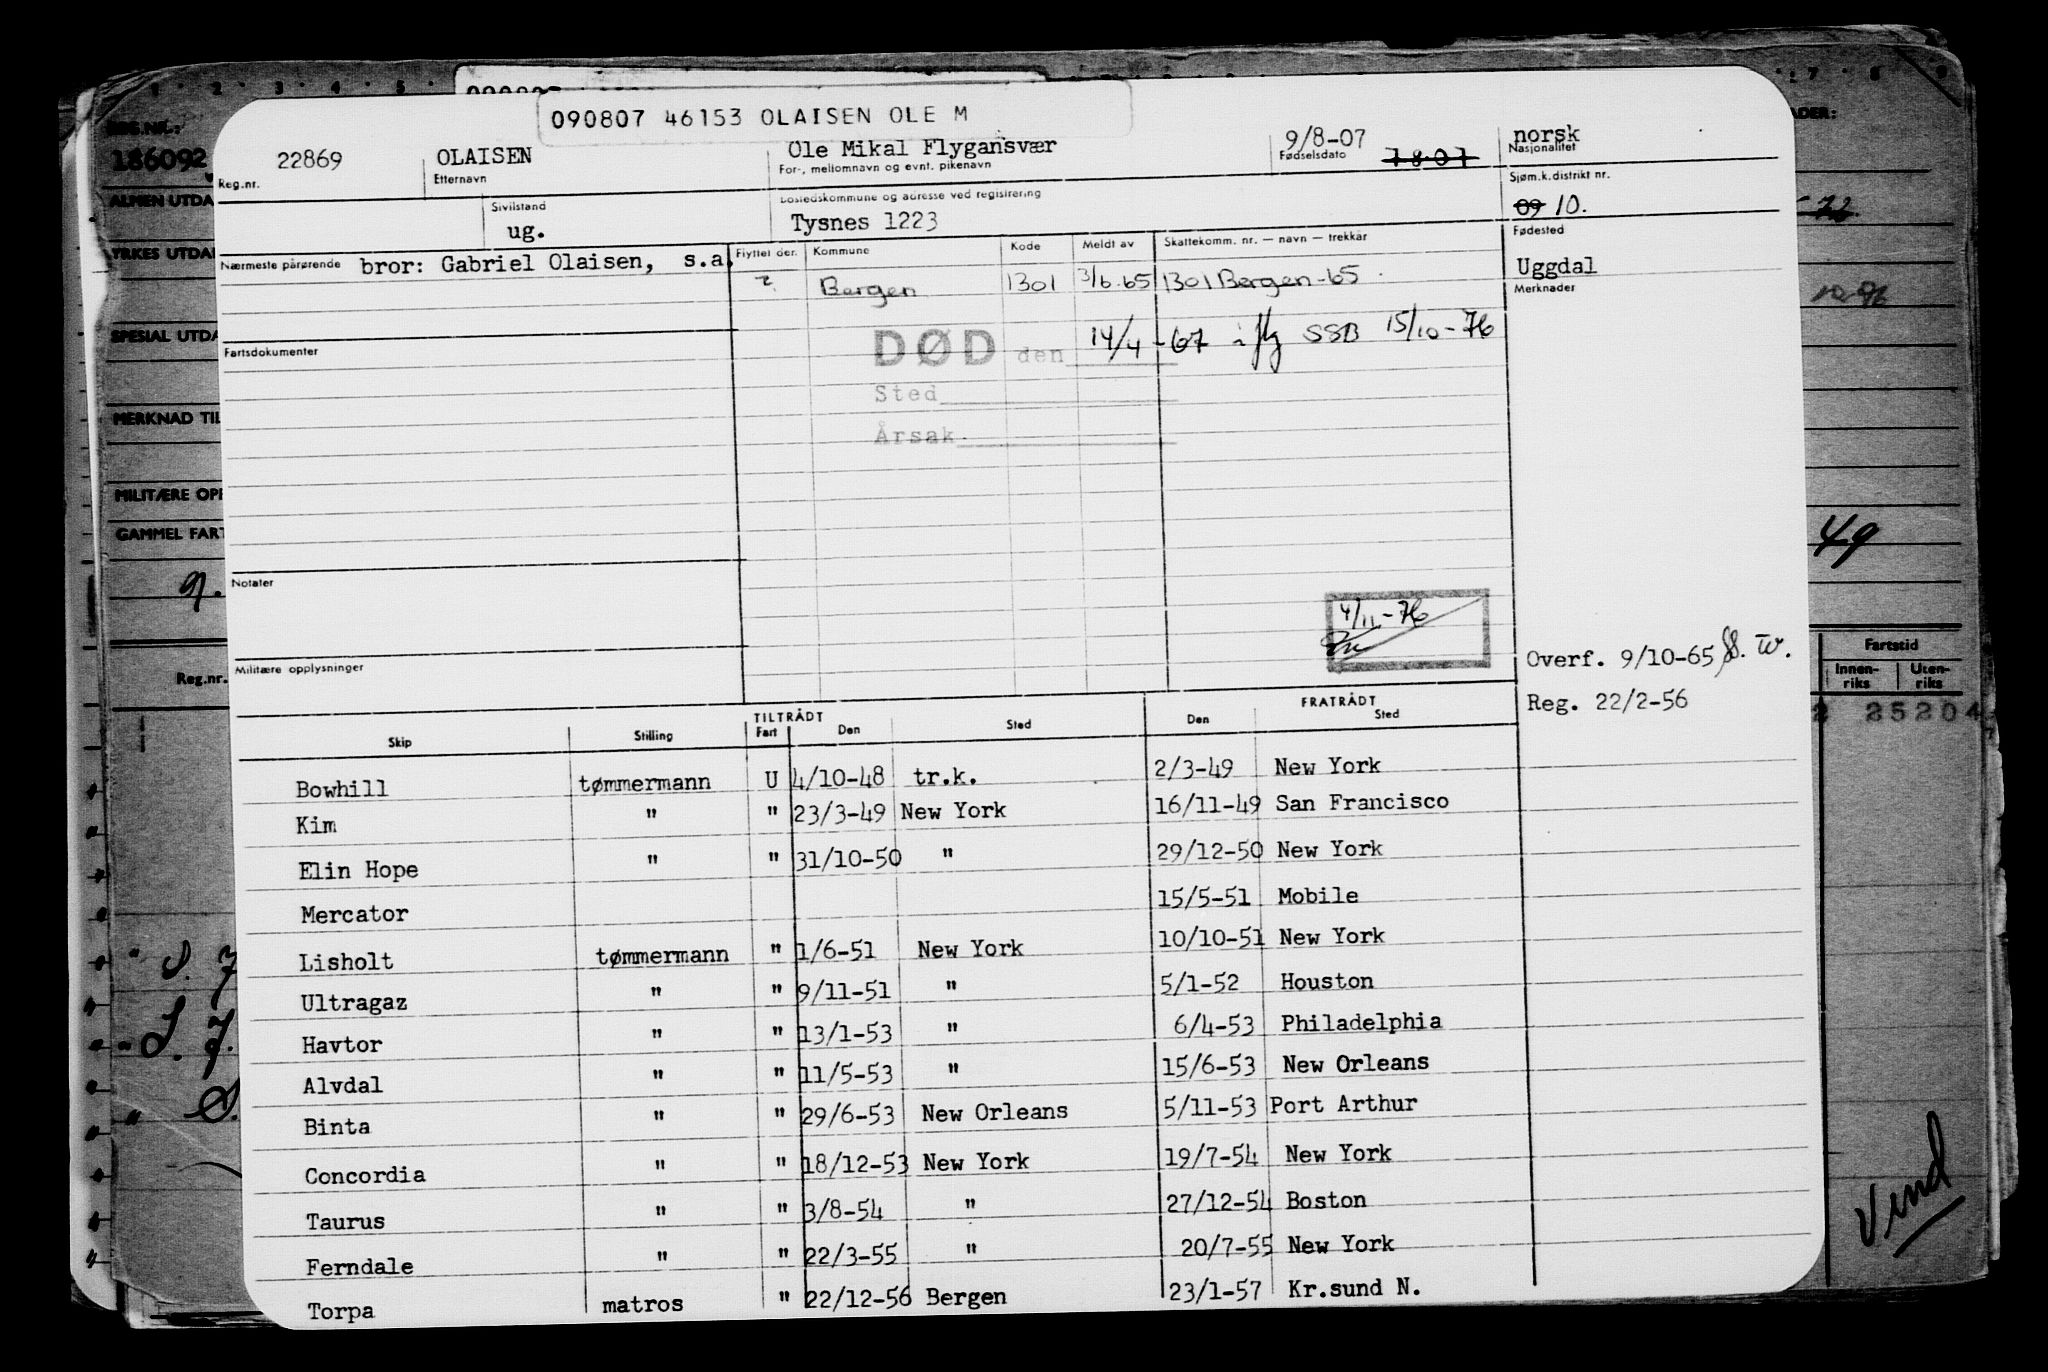 090807 46153 OLAISEN OLE M
REG.NR.:
186092
Reg.nr. 22869
OLAISEN
Etternavn
Ole Mikal Flygansvær
For-, mellomnavn og evnt. pikenavn
9/8-07
Fødselsdato 7-8-07
norsk
Nasjonalitet
Sivilstand
ug.
Bostedskommune og adresse ved registrering
Tysnes 1223
Sjøm.k.distrikt nr.
09 10.
Nærmeste pårørende bror: Gabriel Olaisen, s.a.
Flyttet der. Kommune Kode Meldt av Skattekomm. nr. — navn — trekkår
? Bergen 1301 3/6.65 1301 Bergen-65
Fødested
Uggdal
Merknader
Fartsdokumenter
DØD den 14/4-67 iflg SSB 15/10-76
Sted
Årsak
Notater
4/11-76
Militære opplysninger
Overf. 9/10-65 W.
Reg. 22/2-56
TILTRÅDT FRATRÅDT
Skip Stilling Fart Den Sted Den Sted
Bowhill tømmermann U 4/10-48 tr.k. 2/3-49 New York
Kim " " 23/3-49 New York 16/11-49 San Francisco
Elin Hope " " 31/10-50 " 29/12-50 New York
Mercator 15/5-51 Mobile
Lisholt tømmermann " 1/6-51 New York 10/10-51 New York
Ultragaz " " 9/11-51 " 5/1-52 Houston
Havtor " " 13/1-53 " 6/4-53 Philadelphia
Alvdal " " 11/5-53 " 15/6-53 New Orleans
Binta " " 29/6-53 New Orleans 5/11-53 Port Arthur
Concordia " " 18/12-53 New York 19/7-54 New York
Taurus " " 3/8-54 " 27/12-54 Boston
Ferndale " " 22/3-55 " 20/7-55 New York
Torpa matros " 22/12-56 Bergen 23/1-57 Kr.sund N.
ALMEN UTDA
YRKES UTDA
SPESIAL UTDA
MERKNAD TIL
MILITÆRE OPP
GAMMEL FART
Reg.nr.
49
Fartstid
Innen-riks Uten-riks
2 25204
Vend